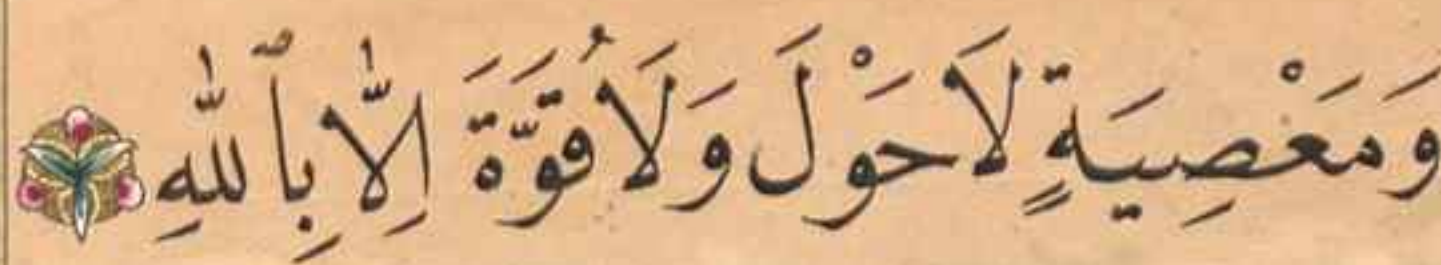 وَمَعْصِيَةٍ لَاحَوْلَ وَلَاقُوَّةَ اِلَّا بِٱللّٰهِ